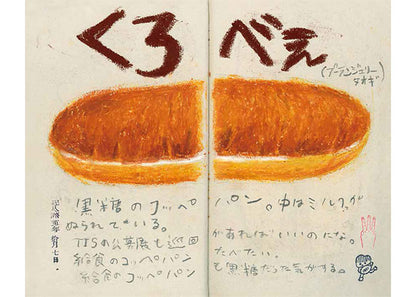 くろべえ
(ブーランジュリー
タオギ)
黒糖のコッペパン。中はミルクが
ぬられている。
の公募展も巡回があればいいのにな。
給食のコッペパンたべたい。
給食のコッペパンも黒糖だった気がする。